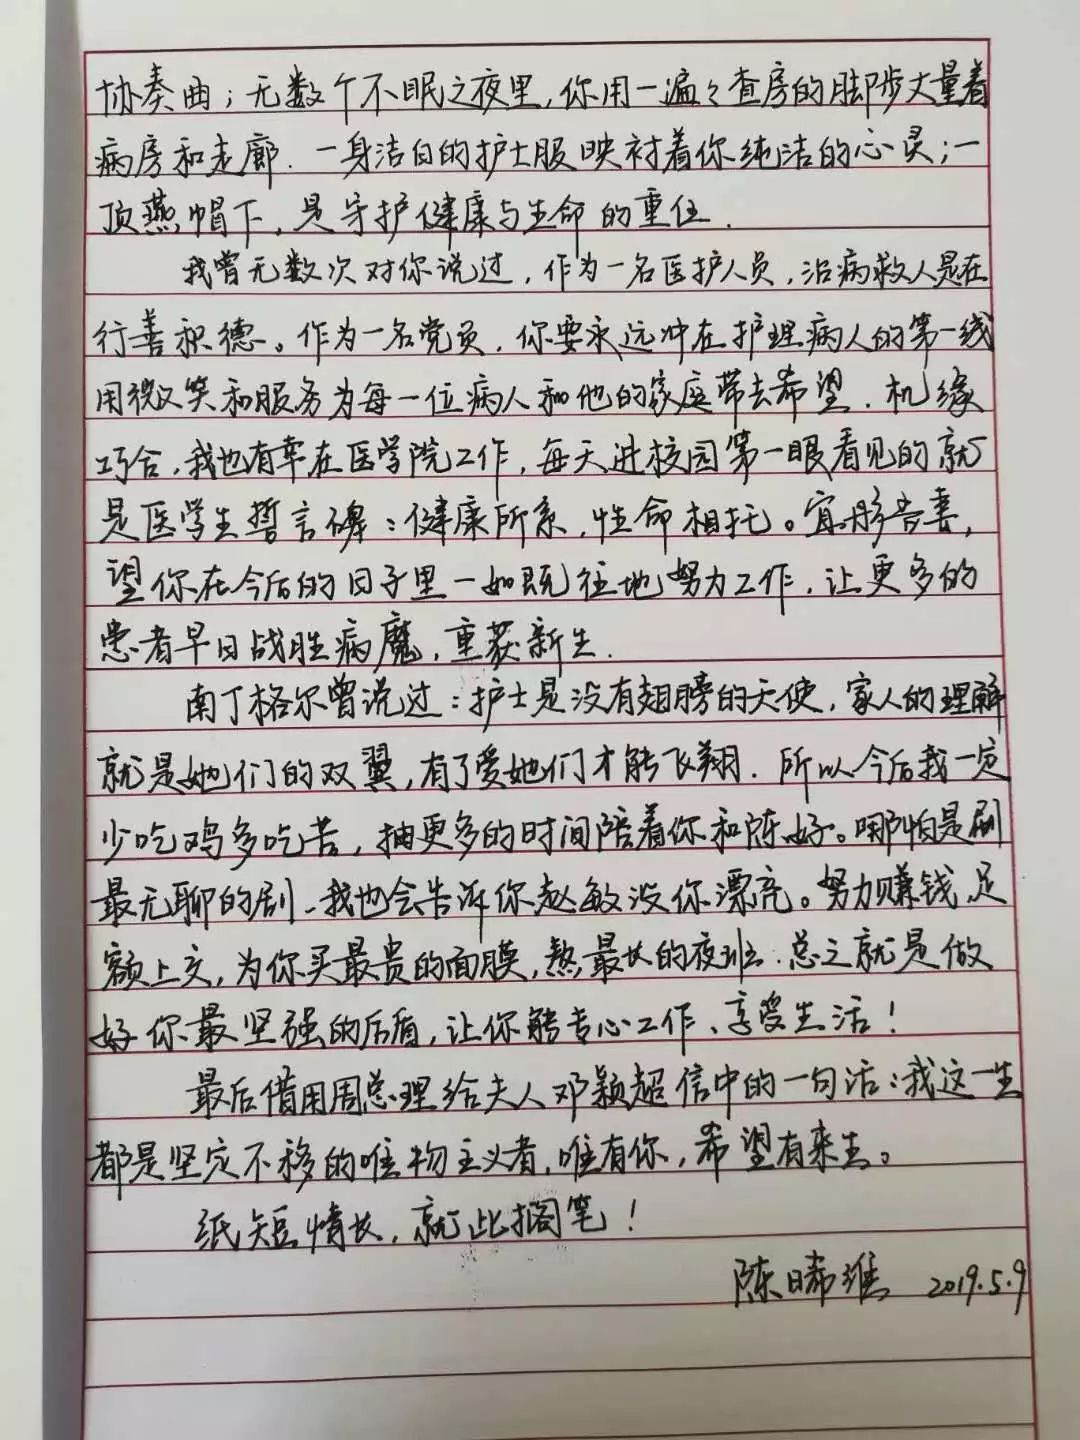 协奏曲；无数个不眠之夜里，你用一遍々查房的脚步丈量着
病房和走廊．一身洁白的护士服映衬着你纯洁的心灵；一
顶燕帽下，是守护健康与生命的重任．
我曾无数次对你说过，作为一名医护人员，治病救人是在
行善积德。作为一名党员，你要永远冲在护理病人的第一线
用微笑和服务为每一位病人和他的家庭带去希望．机缘
巧合，我也有幸在医学院工作，每天进校园第一眼看见的就
是医学生誓言碑：健康所系，性命相托。
望你在今后的日子里一如既往地努力工作，让更多的
患者早日战胜病魔，重获新生．
南丁格尔曾说过：护士是没有翅膀的天使，家人的理解
就是她们的双翼，有了爱她们才能飞翔．所以今后我一定
少吃鸡多吃苦，抽更多的时间陪着你和陈好。哪怕是刷
最无聊的剧、我也会告诉你赵敏没你漂亮。努力赚钱，足
额上交，为你买最贵的面膜，熬最长的夜班．总之就是做
好你最坚强的后盾，让你能专心工作、享受生活！
最后借用周总理给夫人邓颖超信中的一句话：我这一生
都是坚定不移的唯物主义者，唯有你，希望有来生。
纸短情长，就此搁笔！
陈晞 2019.5.9